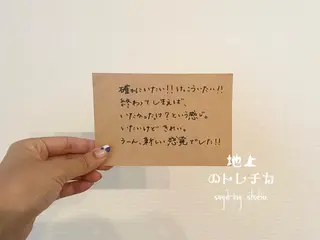 確かにいたい!!けっこういたい!!
終わってしまえば、
いたかったけ?という感じ。
いたいけどきれい。
うーん、新しい感覚でした!!
地上
のトレチカ